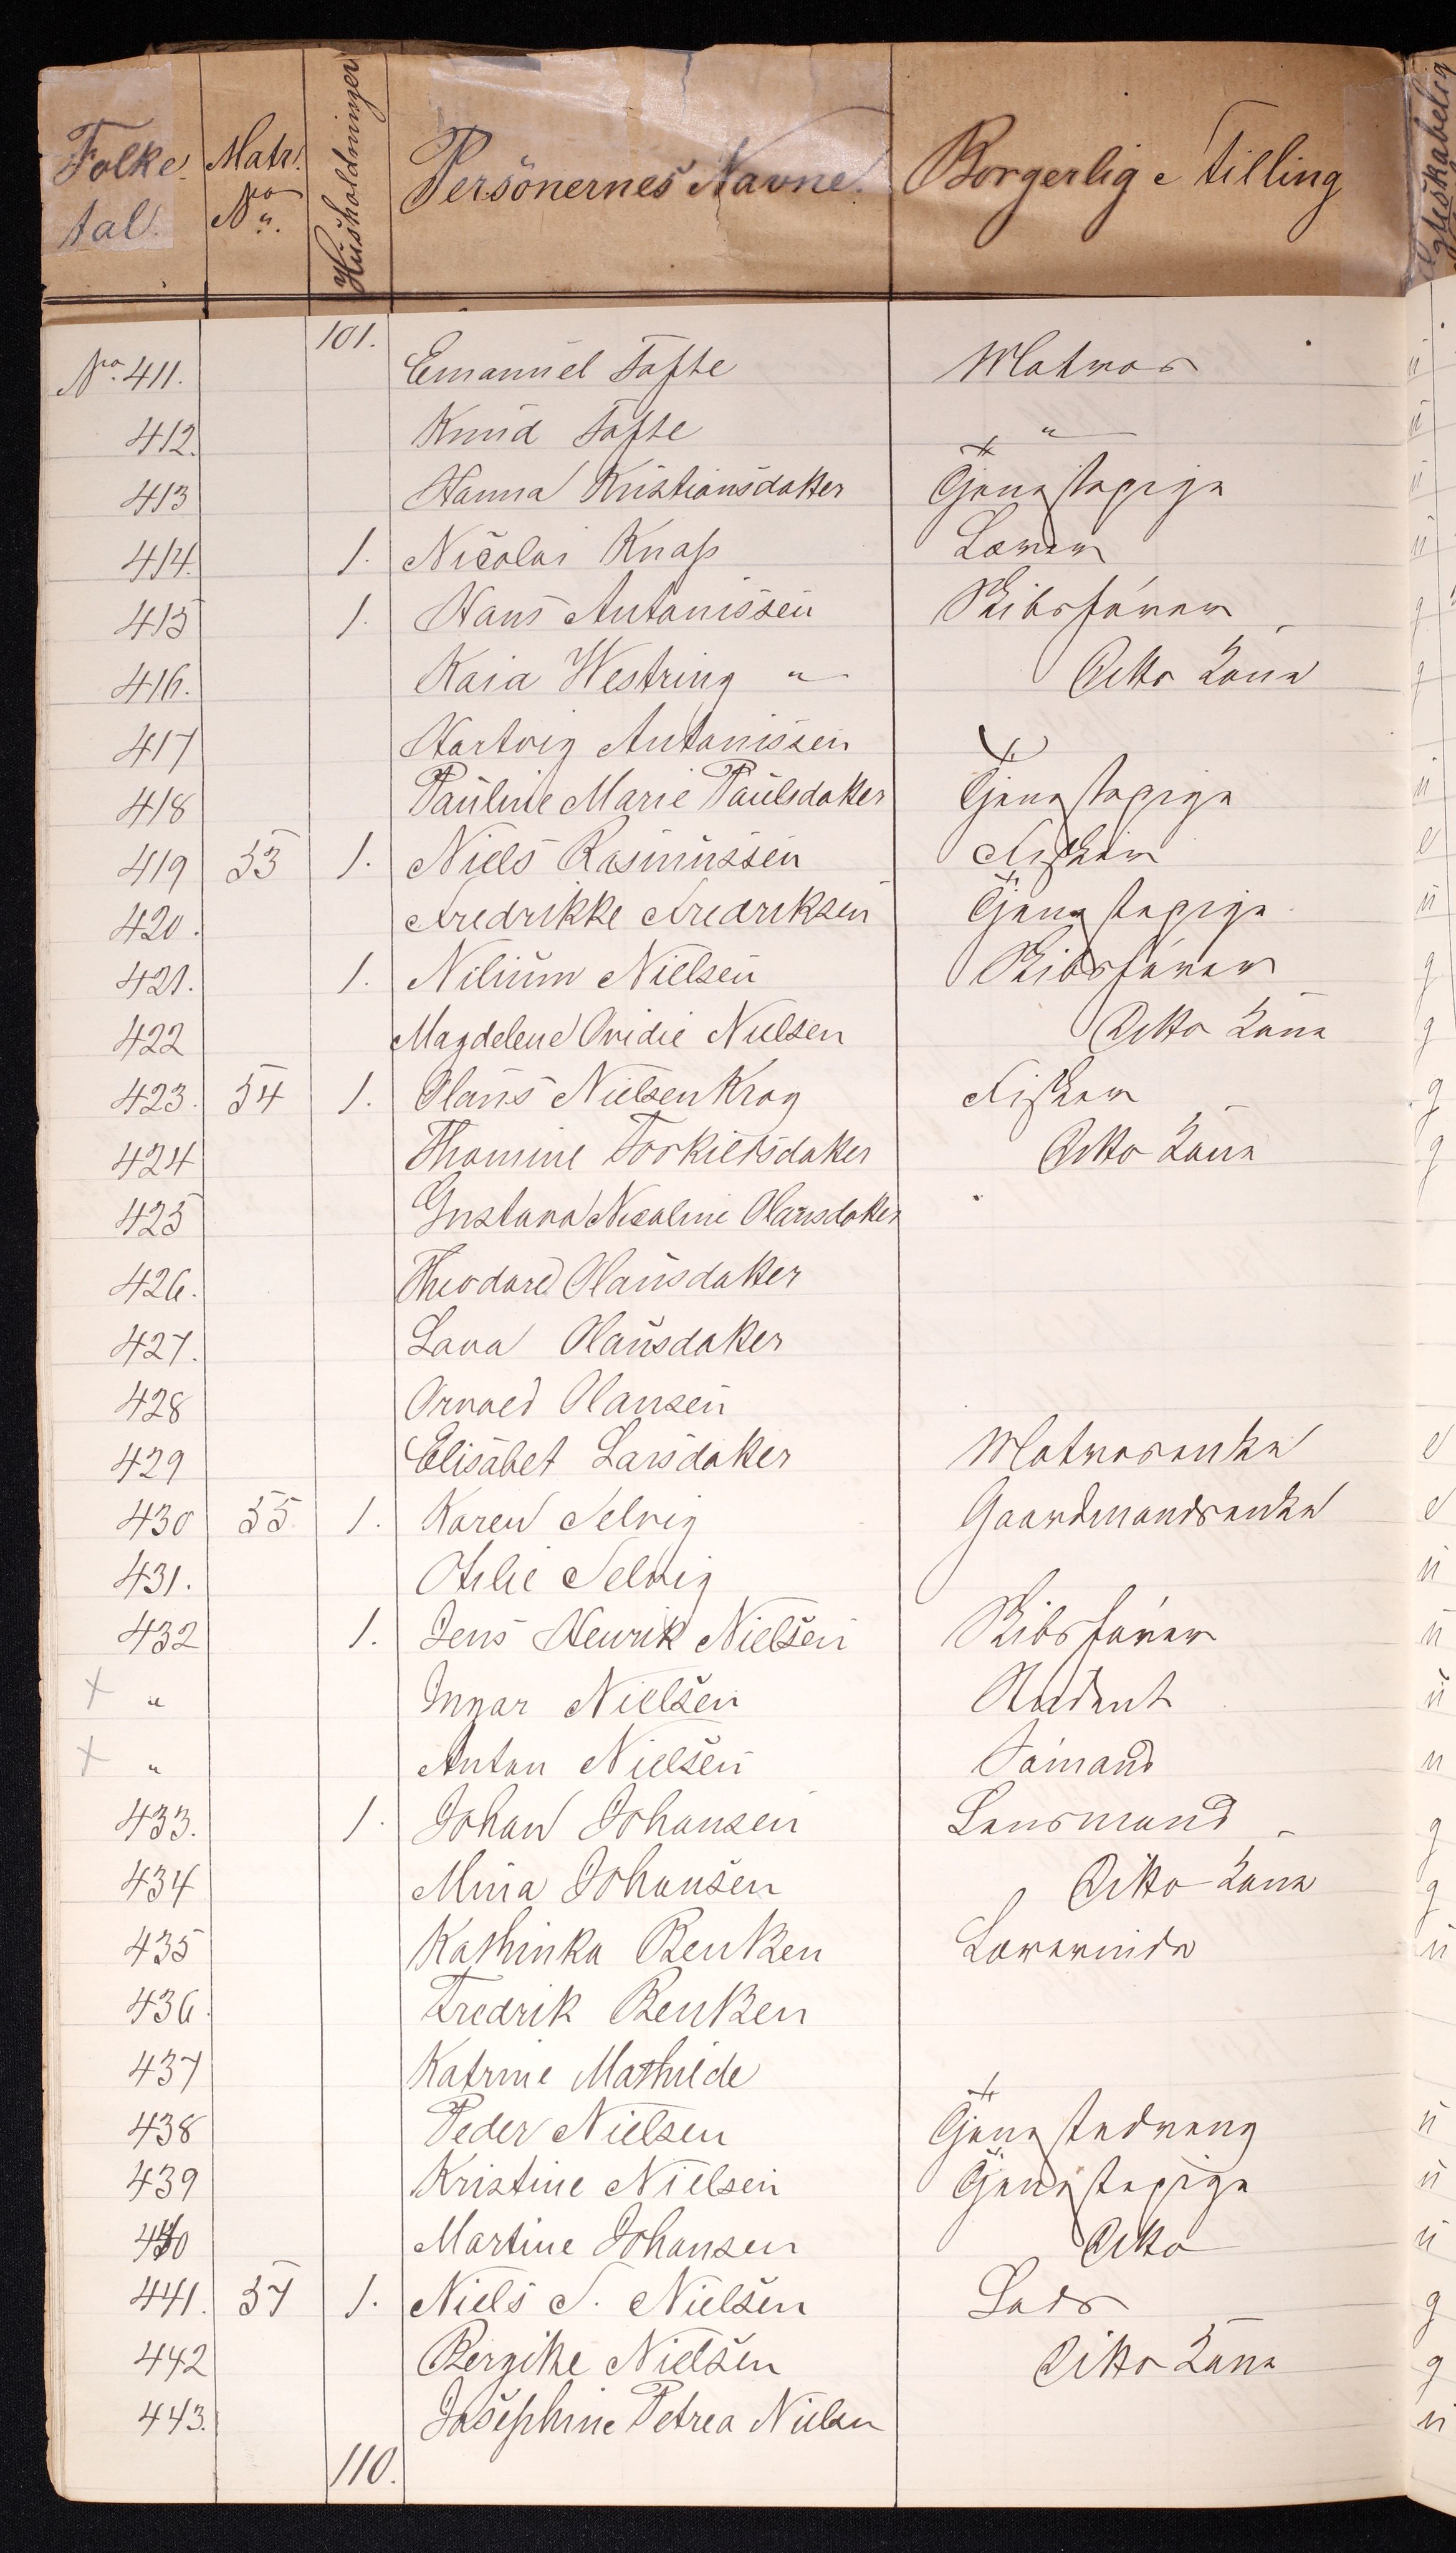 Folketal. Matr. No. Huusholdninger Personernes Navne. Borgerlig Stilling Egteskabelig
101.
No. 411. Emanuel Tofte Matros
412. Knud Tofte "
413 Hanna Kristiansdatter Tjenestepige
414. 1. Nicolai Knap Lærer
415 1. Hans Antonissen Skibsfører
416. Kaia Westring " Ditto Kone
417 Hartvig Antonissen
418 Pauline Marie Paulsdatter Tjenestepige
419 53 1. Niels Rasmussen Fisker
420. Fredrikke Fredriksen Tjenestepige
421. 1. Nilium Nielsen Skibsfører
422 Magdelene Ovidie Nielsen Ditto Kone
423. 54 1. Olaus Nielsen Krog Fisker
424 Thomine Torkildsdatter Ditto Kone
425 Gustava Nicoline Olausdatter
426. Theodore Olausdatter
427. Lava Olausdatter
428 Orvald Olausen
429 Elisabet Larsdatter Matrosenke
430 55. 1. Karen Selvig Gaardmandsenke
431. Otilie Selvig
432 1. Jens Henrik Nielsen Skibsfører
+ " Ingar Nielsen Student
+ " Anton Nielsen Sømand
433. 1. Johan Johansen Lensmand
434 Mina Johansen Ditto Kone
435 Kathinka Benken Lærerinde
436. Fredrik Benken
437 Katrine Mathilde
438 Peder Nielsen Tjenestedreng
439 Kristine Nielsen Tjenestepige
440 Martine Johansen Ditto
441. 57 1. Niels S. Nielsen Lods
442 Bergitte Nielsen Ditto Kone
443. Josephine Petrea Nielsen
110.